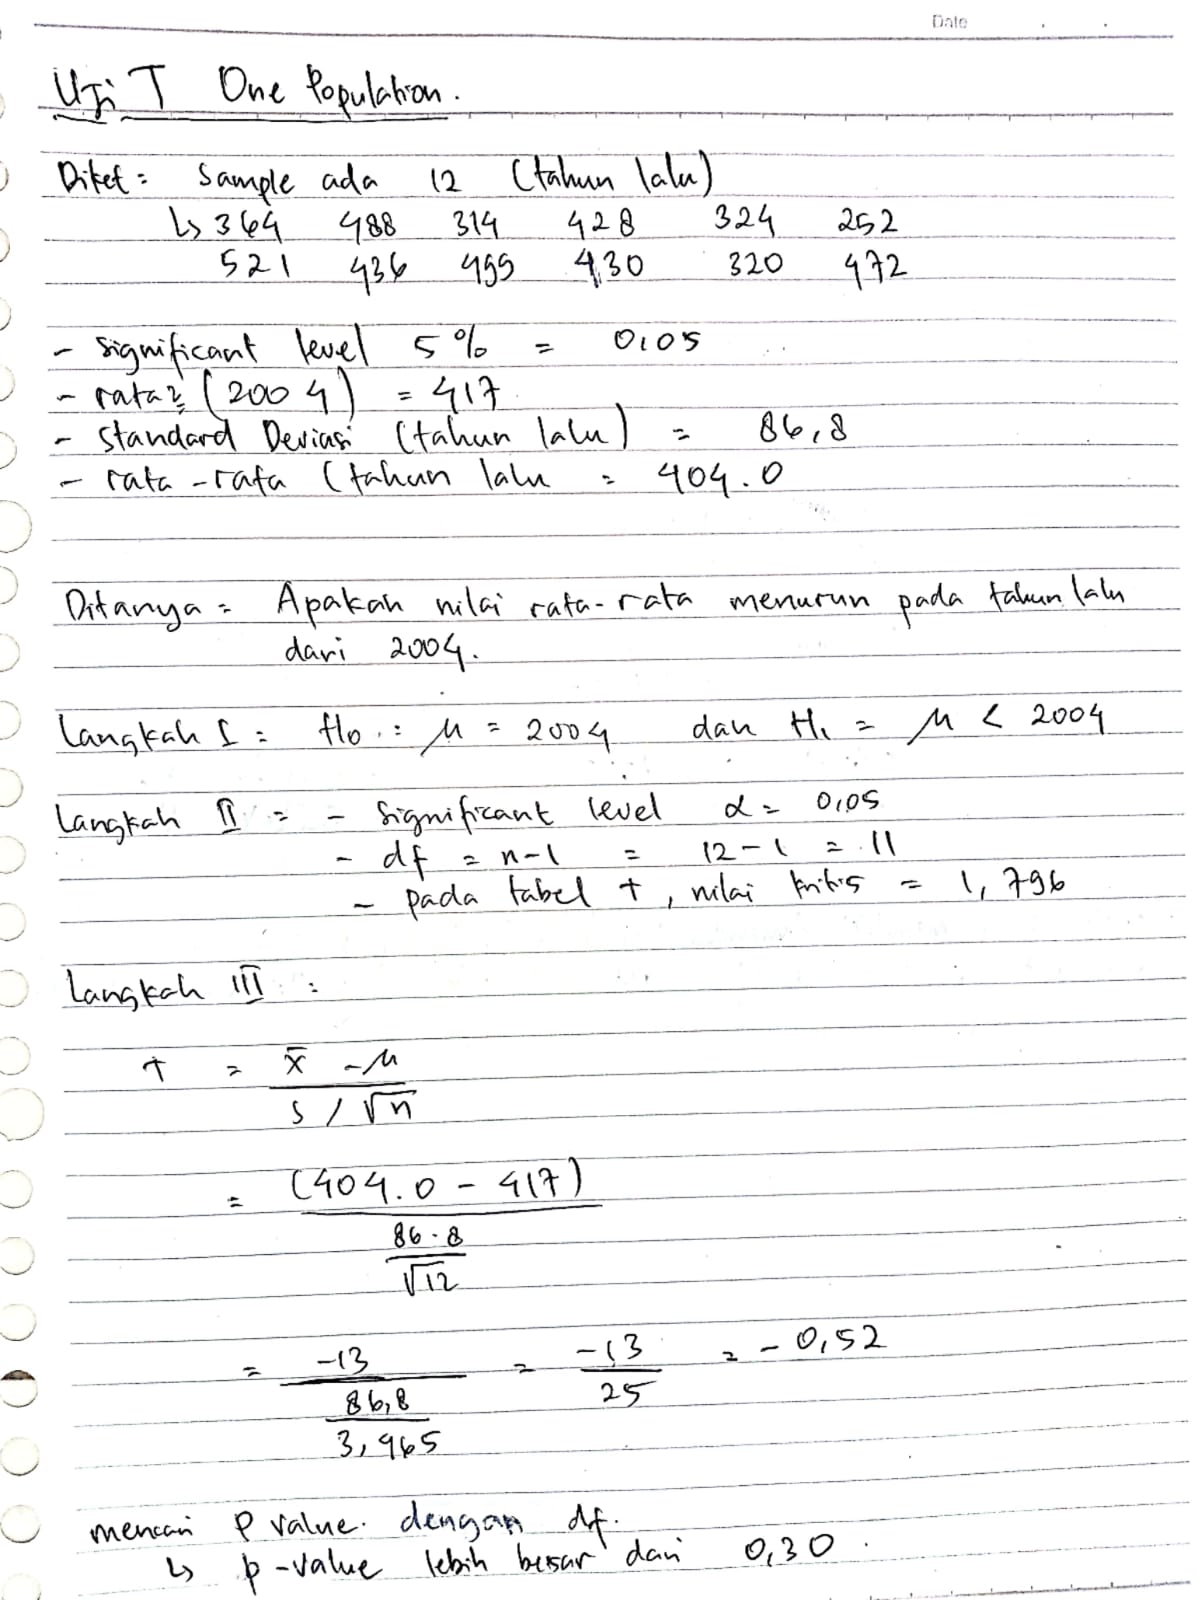 Date
Uji T One Population.
Diket = Sample ada 12 (tahun lalu)
↳ 364 488 314 428 324 252
521 436 499 430 320 472
- Significant level 5% = 0,05
- rata2 (2004) = 417
- Standard Deviasi (tahun lalu) = 86,8
- rata-rata (tahun lalu = 404.0
Ditanya = Apakah nilai rata-rata menurun pada tahun lalu
dari 2004.
Langkah I = H0 : M = 2004 dan H1 = M < 2004
Langkah II = - Significant level α = 0,05
- df = n-1 = 12-1 = 11
- pada tabel t, nilai kritis = 1,796
Langkah III :
t = x̄ - M
s / √n
= (404.0 - 417)
86.8
√12
= -13 = -13 = -0,52
86,8 25
3,465
mencari P value. dengan df.
↳ p-value lebih besar dari 0,30.